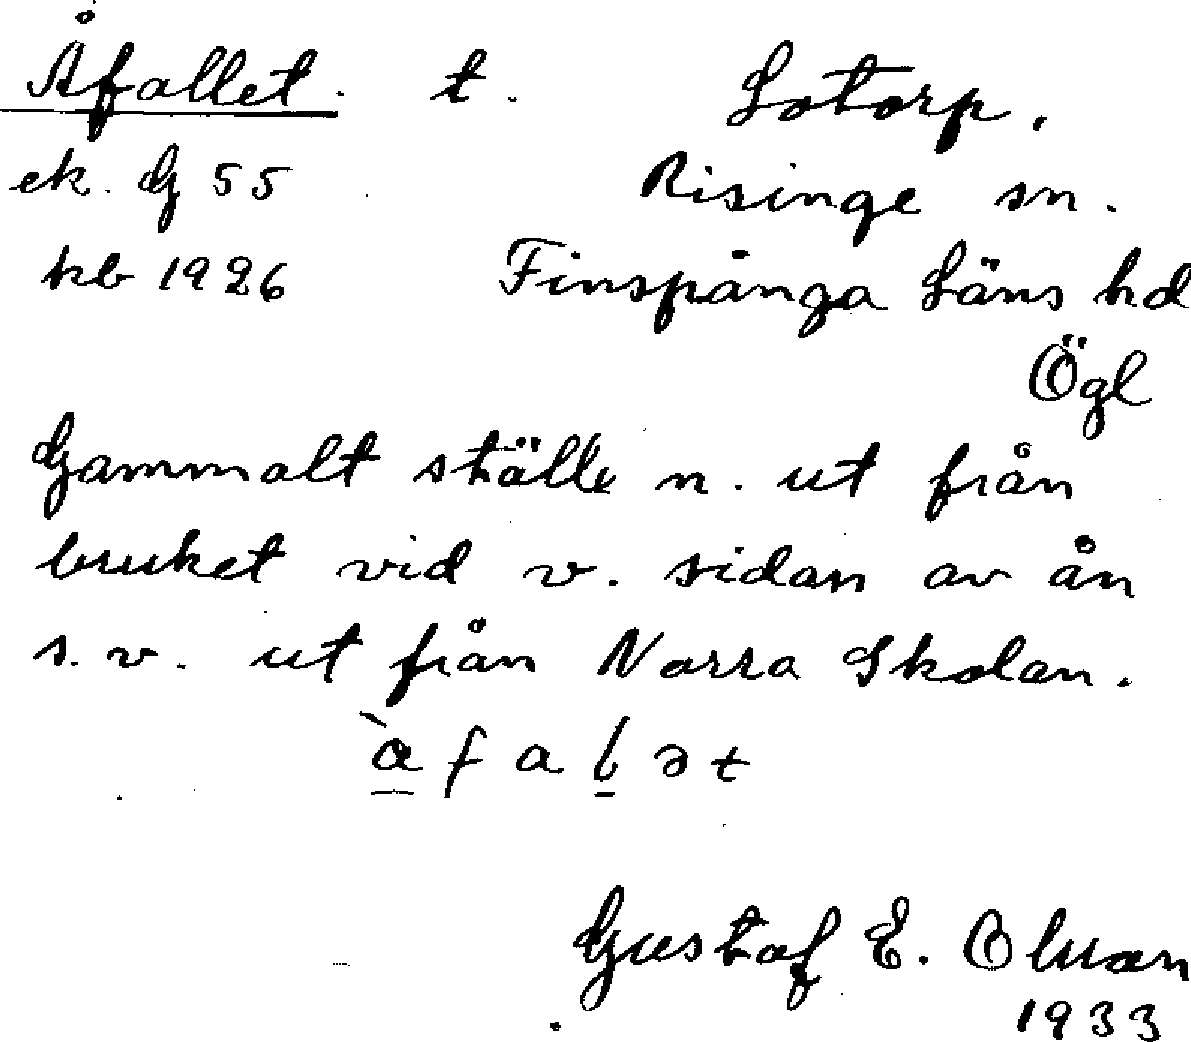 Åfallet. t. Lotorp.
ek. G 55 Risinge sn.
kb 1926 Finspånga Läns hd
Ögl
Gammalt ställe n. ut från
bruket vid v. sidan av ån
s.v. ut från Norra Skolan.
Gustaf E.
1933